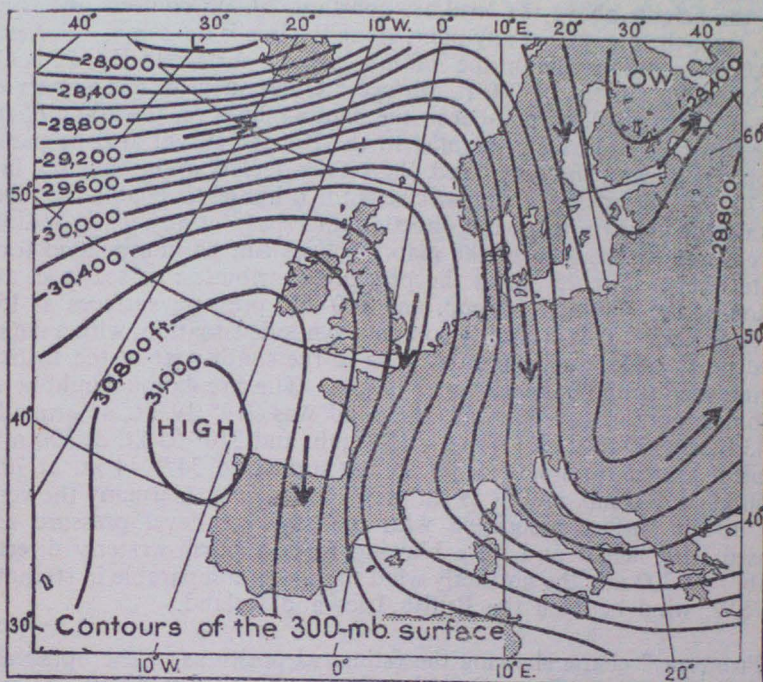 40° 30° 20° 10°W. 0° 10°E. 20° 30° 40°
28,000
28,400
28,800
29,200
29,600
30,000
30,400
30,800 ft.
31,000
HIGH
LOW
28,400
28,800
50°
40°
30°
60°
50°
40°
Contours of the 300-mb. surface
10°W. 0° 10°E. 20°